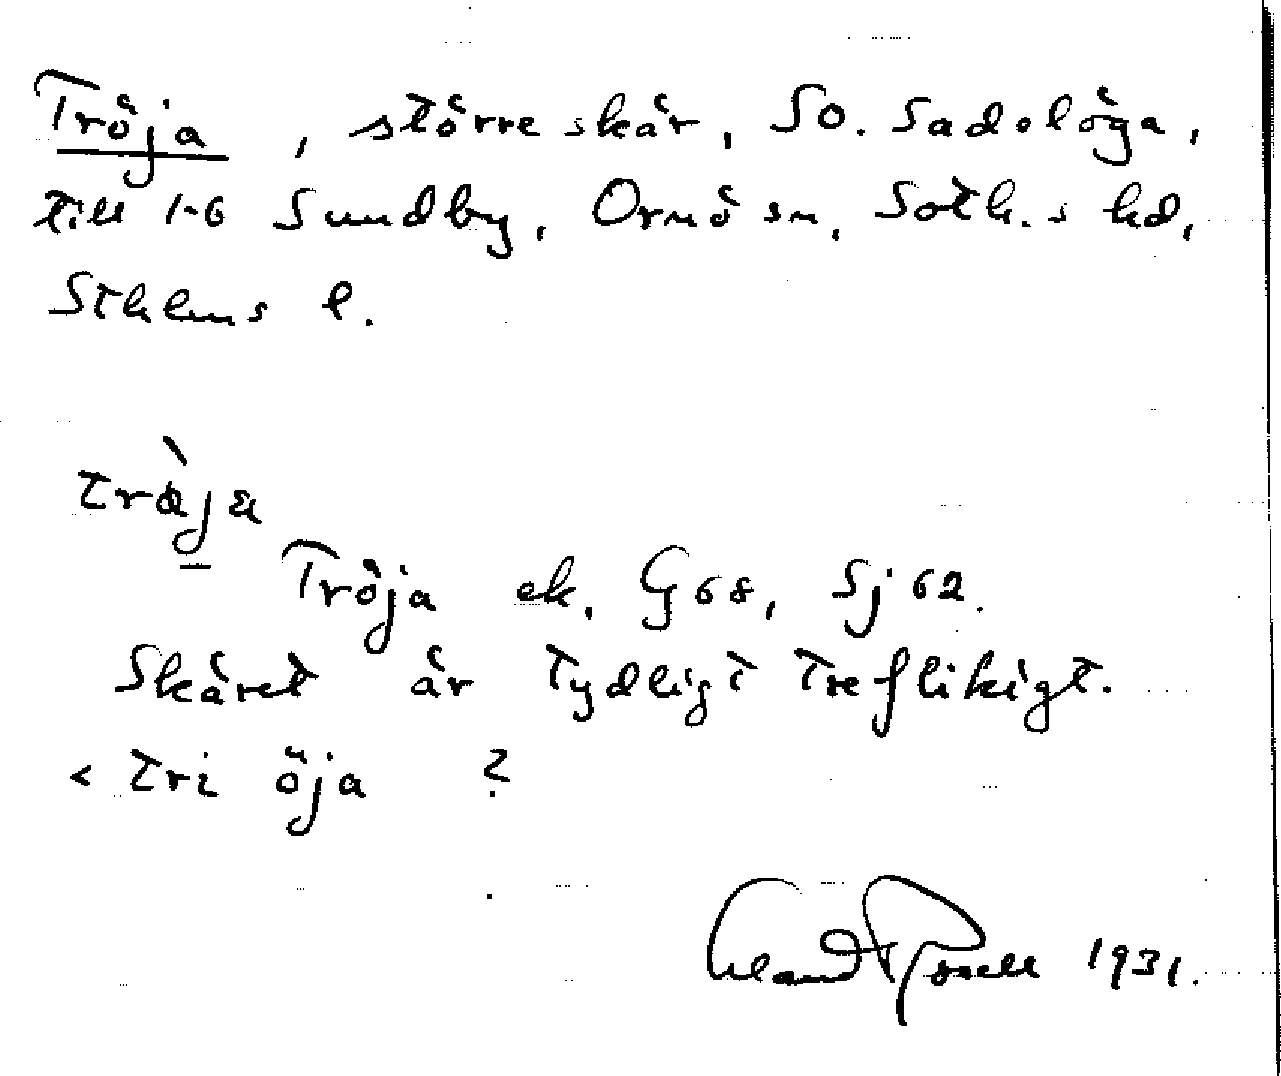 Tröja, större skär, SO. Sadelöga,
till 1-6 Sundby, Ornö sn, Soth.s hd,
Sthlms l.
tròja
Tröja ek. G 68, Sj 62.
Skäret är tydligt treflikigt.
< tri öja ?
1931.